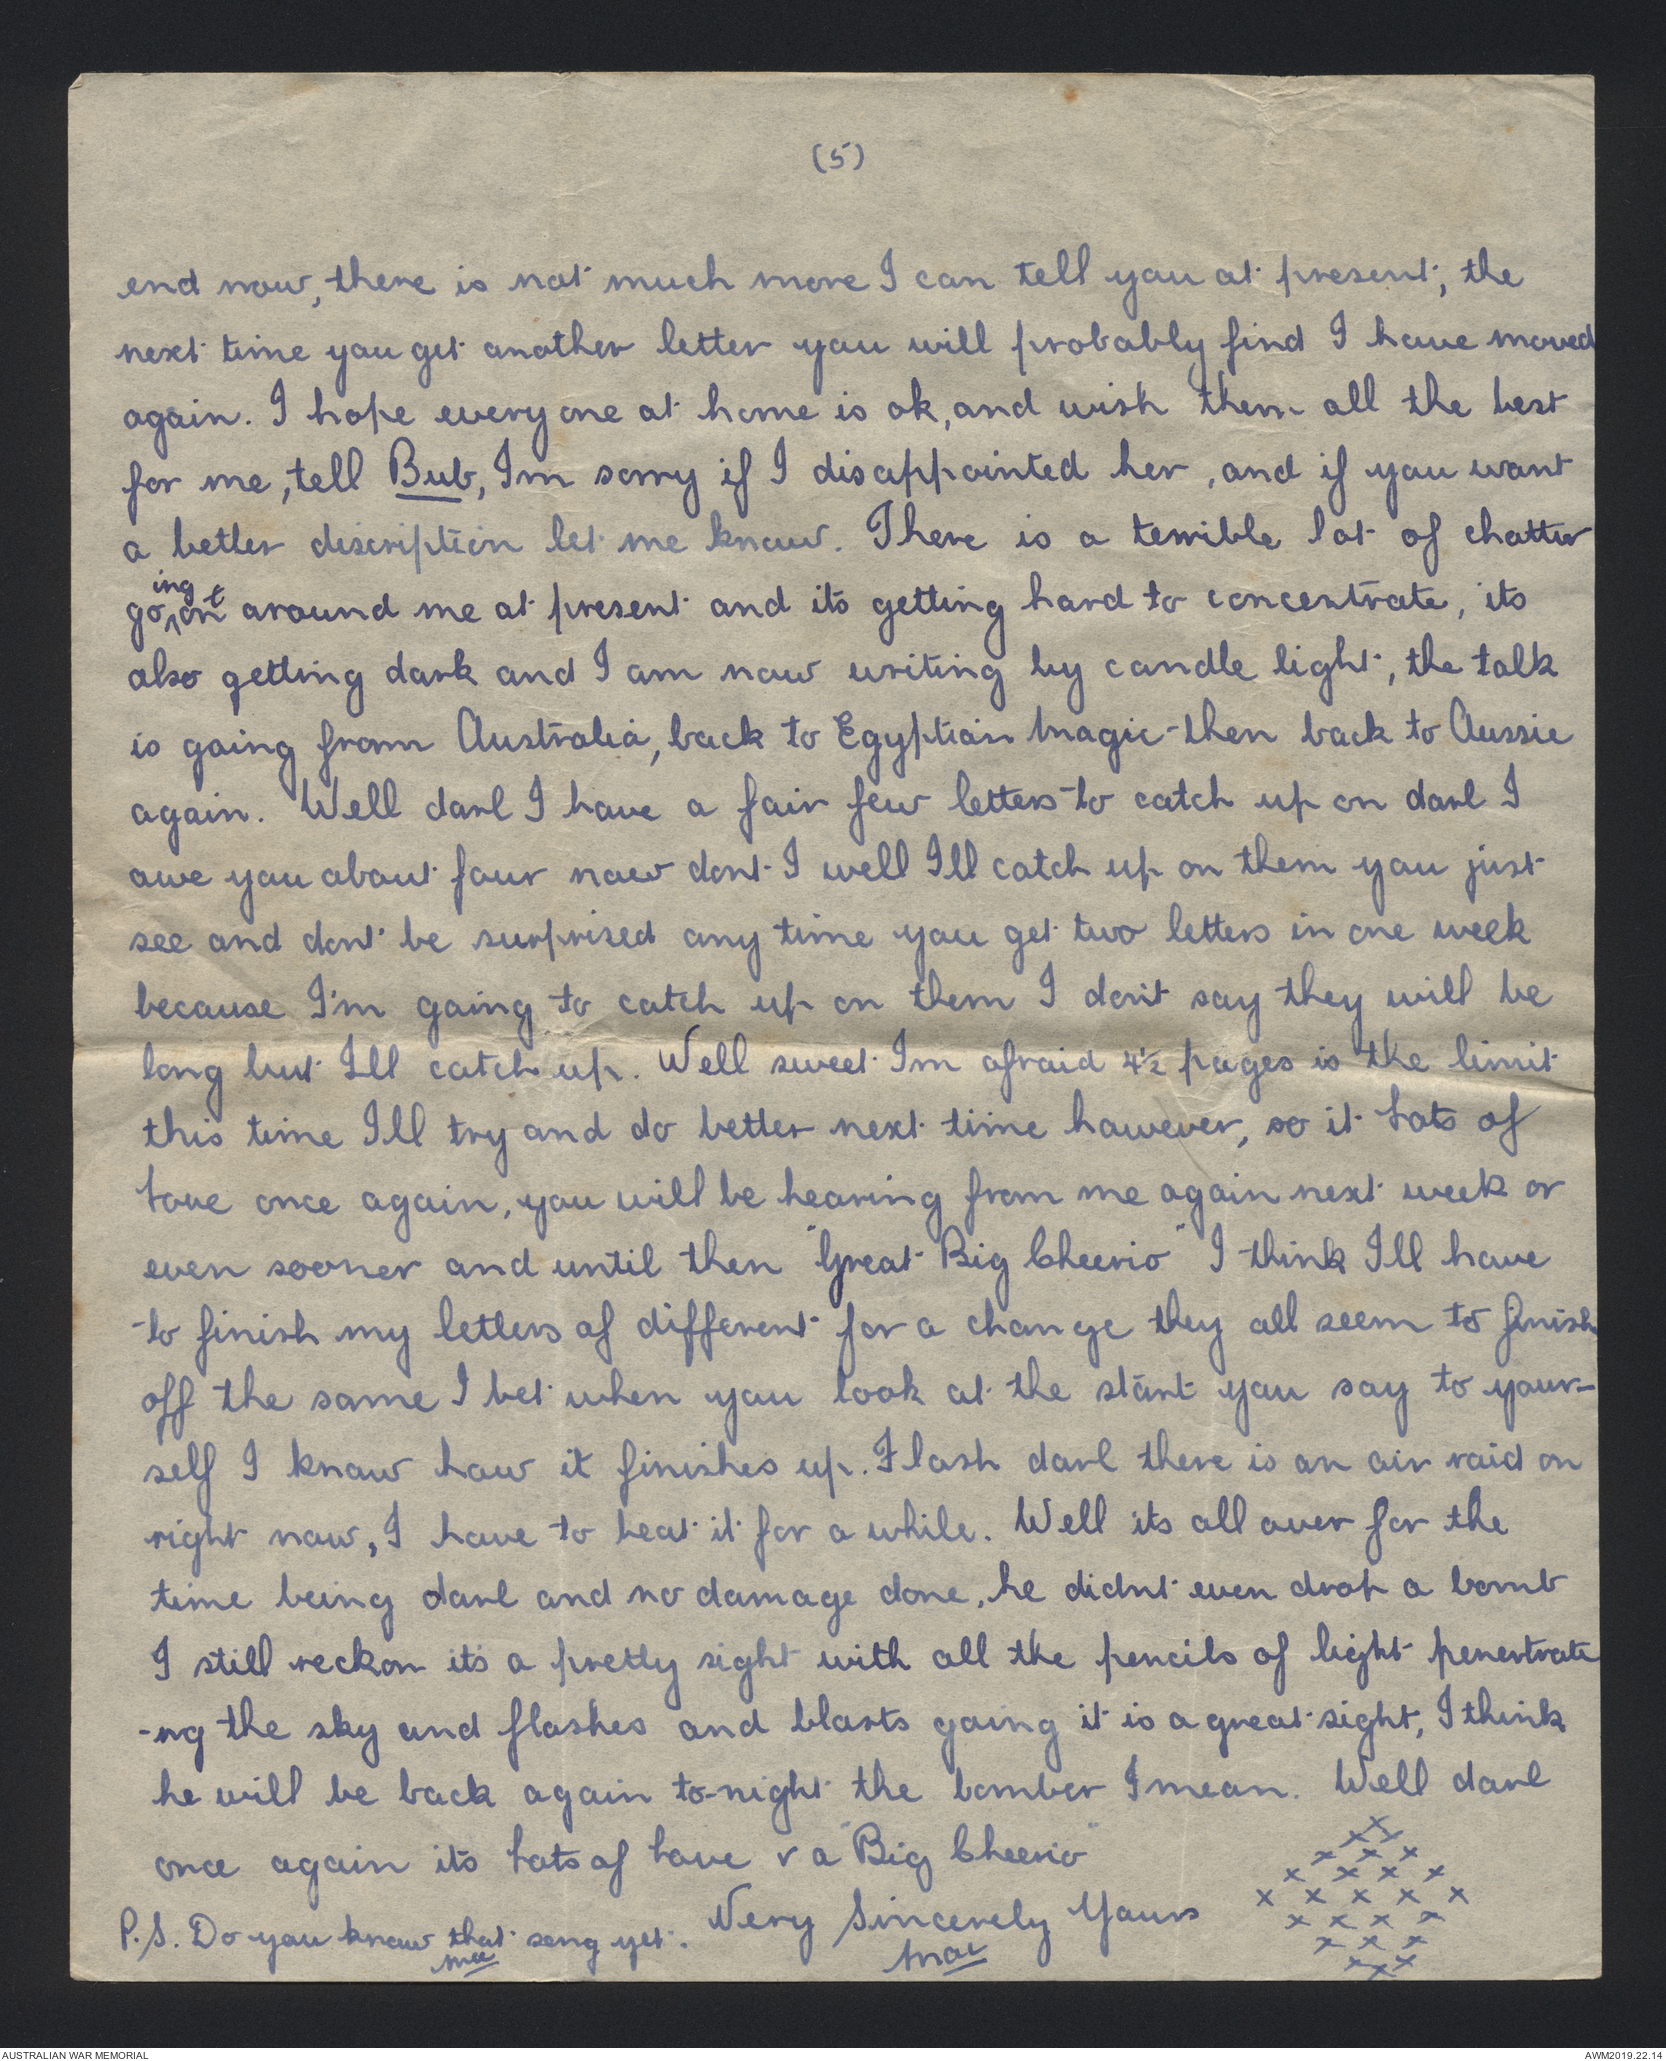 (5)
end now, there is not much more I can tell you at present, the
next time you get another letter you will probably find I have moved
again. I hope everyone at home is ok, and wish them all the best
for me, tell Bub, Im sorry if I disappointed her, and if you want
a better discription let me know. There is a terrible lot of chatter
going on around me at present and its getting hard to concentrate, its
also getting dark and I am now writing by candle light, the talk
is going from Australia, back to Egyptian Magic then back to Aussie
again. Well darl I have a fair few letters to catch up on darl I
owe you about four now dont I well Ill catch up on them you just
see and dont be surprised any time you get two letters in one week
because I'm going to catch up on them I don't say they will be
long but Ill catch up. Well sweet Im afraid 4½ pages is the limit
this time Ill try and do better next time however, so it lots of
love once again, you will be hearing from me again next week or
even sooner and until then "Great Big Cheerio" I think Ill have
to finish my letters of different for a change they all seem to finish
off the same I bet when you look at the start you say to your-
self I know how it finishes up. Flash darl there is an air raid on
right now, I have to beat it for a while. Well its all over for the
time being darl and no damage done, he didnt even drop a bomb
I still reckon it's a pretty sight with all the pencils of light penertrate
-ng the sky and flashes and blasts going it is a great sight, I think
he will be back again to-night the bomber I mean. Well darl
once again its lots of love & a "Big Cheerio"
Very Sincerely Yours
Mac
P.S. Do you know that song yet.
Mac
x x
x x
x x x
x x x x
x x x x x
x x x x
x x x
x x x
AUSTRALIAN WAR MEMORIAL
AWM2019.22.14